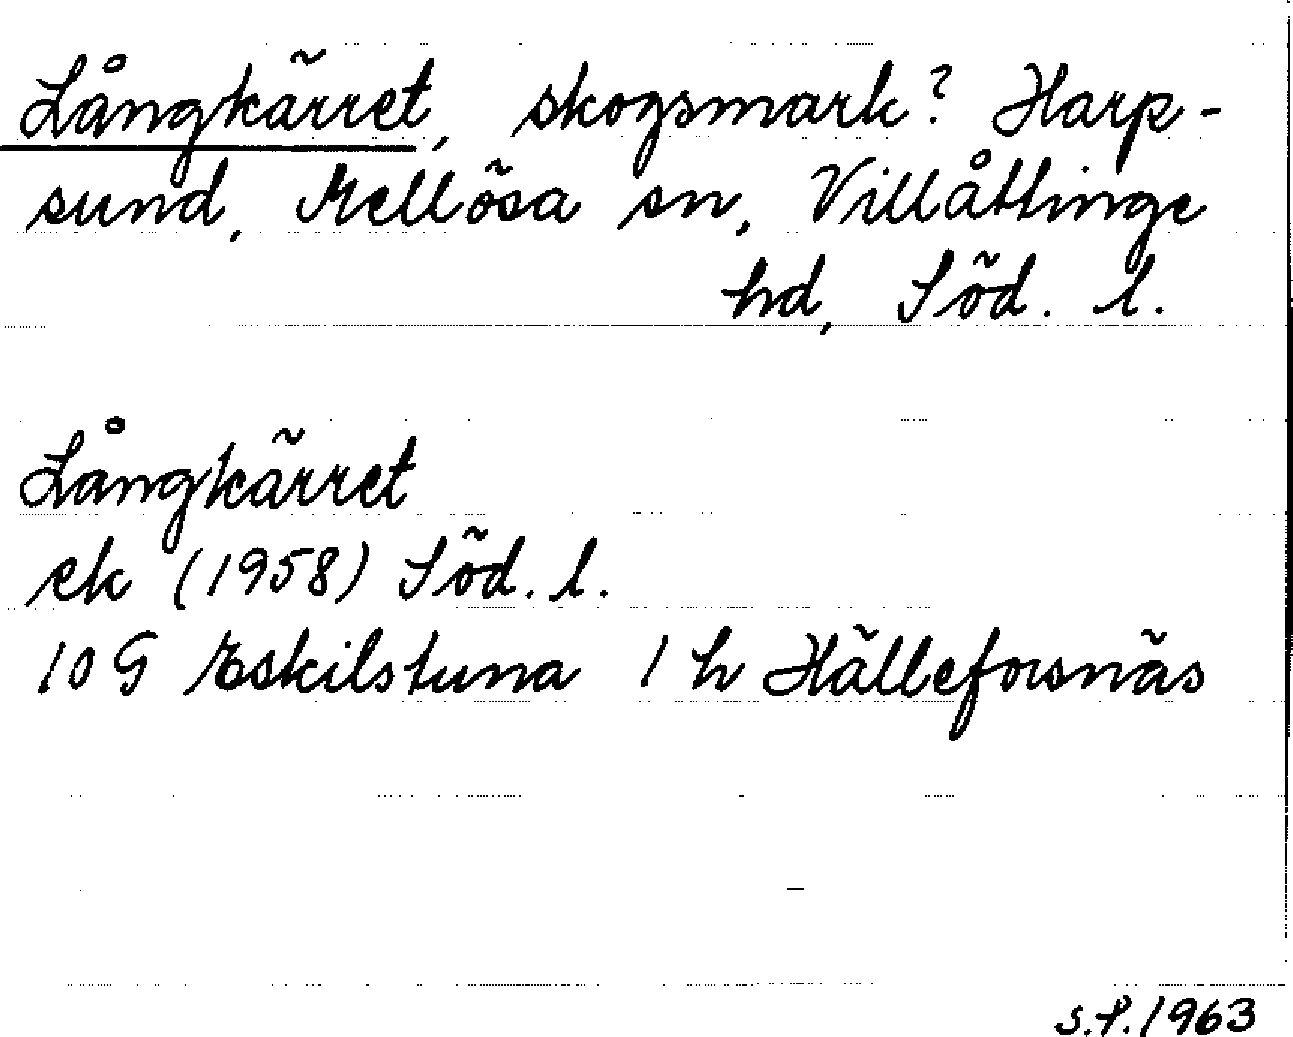 Långkärret, skogsmark? Harp-
sund, Mellösa sn, Villåttinge
hd, Söd. l.
Långkärret
ek (1958) Söd. l.
10 G Eskilstuna 1 h Hälleforsnäs
S.P. 1963